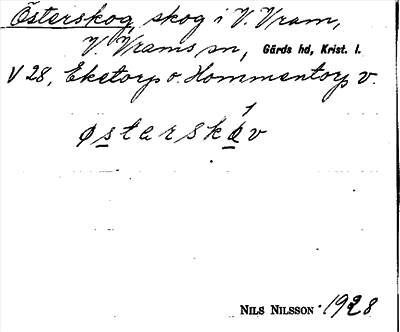 Österskog, skog i V. Vram,
V. Vrams sn, Gärds hd, Krist. l.
V 28, Eketorp o. Hommentorp v.
østerskǿv
NILS NILSSON 1928